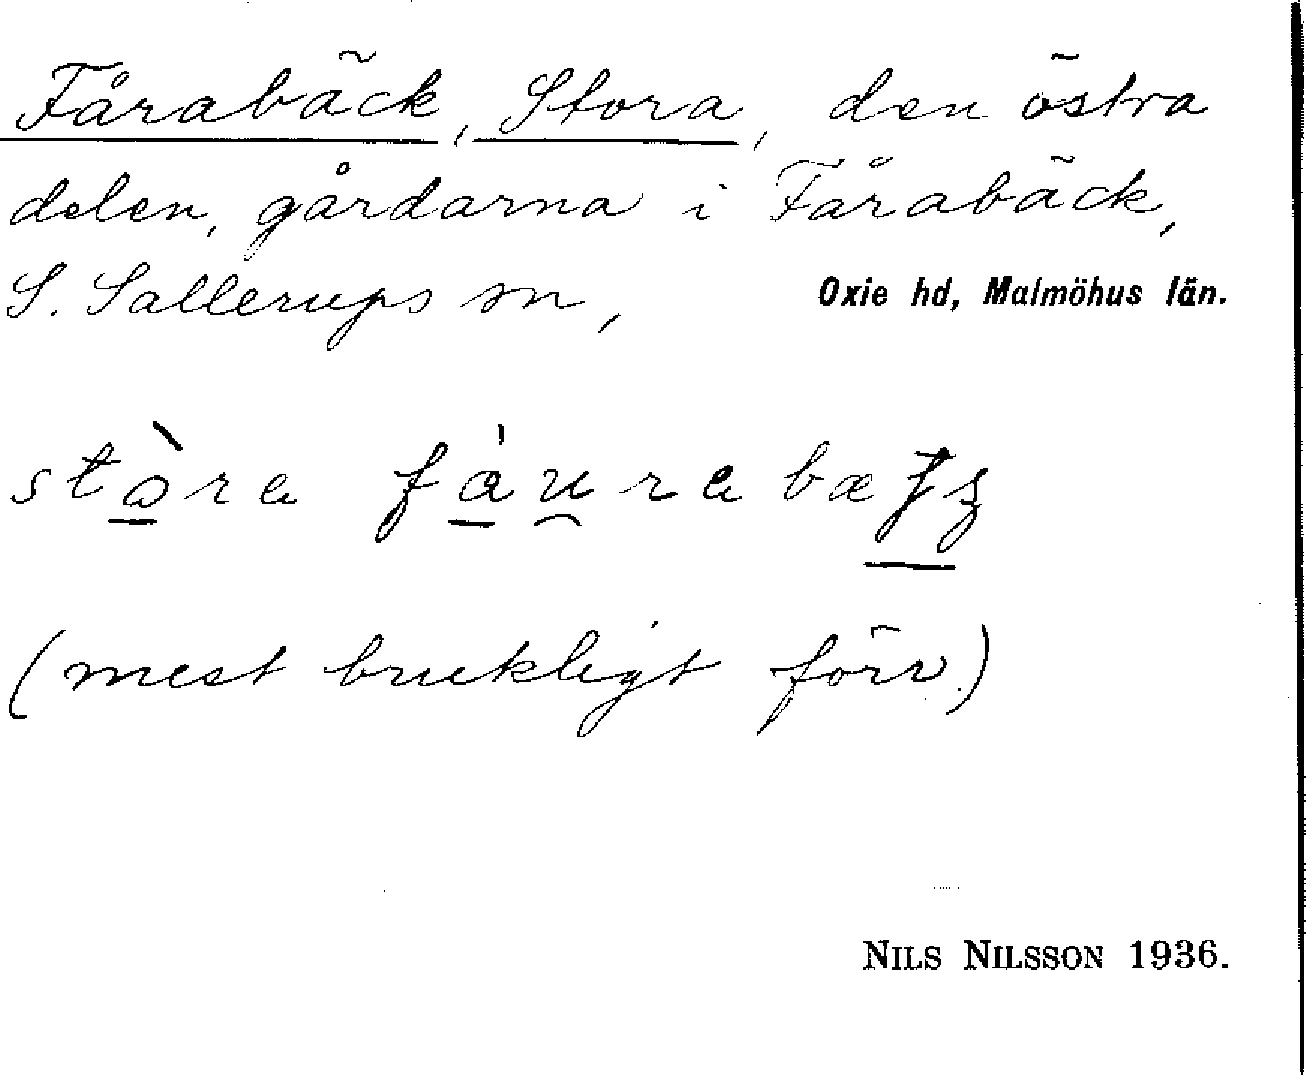 Fårabäck, Stora, den östra
delen, gårdarna i Fårabäck,
S. Sallerups sn, Oxie hd, Malmöhus län.
(mest brukligt förr.)
NILS NILSSON 1936.